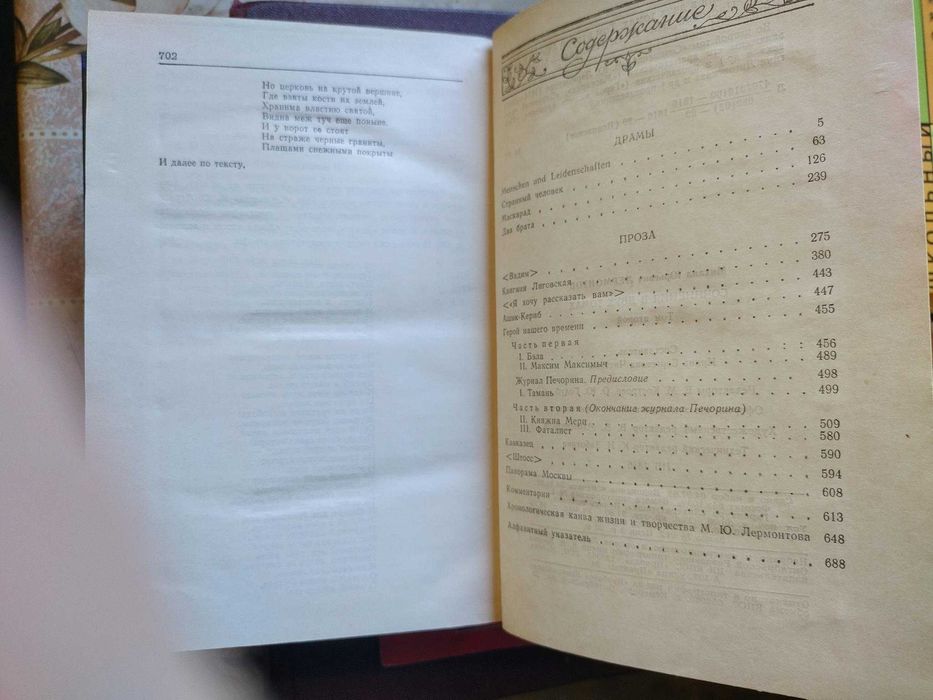 702
Но церковь на крутой вершине,
Где взяты кости их землей,
Хранима властию святой,
Видна меж туч еще поныне.
И у ворот ее стоят
На страже черные граниты,
Плащами снежными покрыты
И далее по тексту.
Содержание
ДРАМЫ
Menschen und Leidenschaften 5
Странный человек 63
Маскарад 126
Два брата 239
ПРОЗА
<Вадим> 275
Княгиня Лиговская 380
<«Я хочу рассказать вам»> 443
Ашик-Кериб 447
Герой нашего времени 455
Часть первая
I. Бэла 456
II. Максим Максимыч 489
Журнал Печорина. Предисловие 498
I. Тамань 499
Часть вторая (Окончание журнала Печорина)
II. Княжна Мери 509
III. Фаталист 580
Кавказец 590
<Штосс> 594
Панорама Москвы 608
Комментарии 613
Хронологическая канва жизни и творчества М. Ю. Лермонтова 648
Алфавитный указатель 688
ШКОЛЬНЫЙ